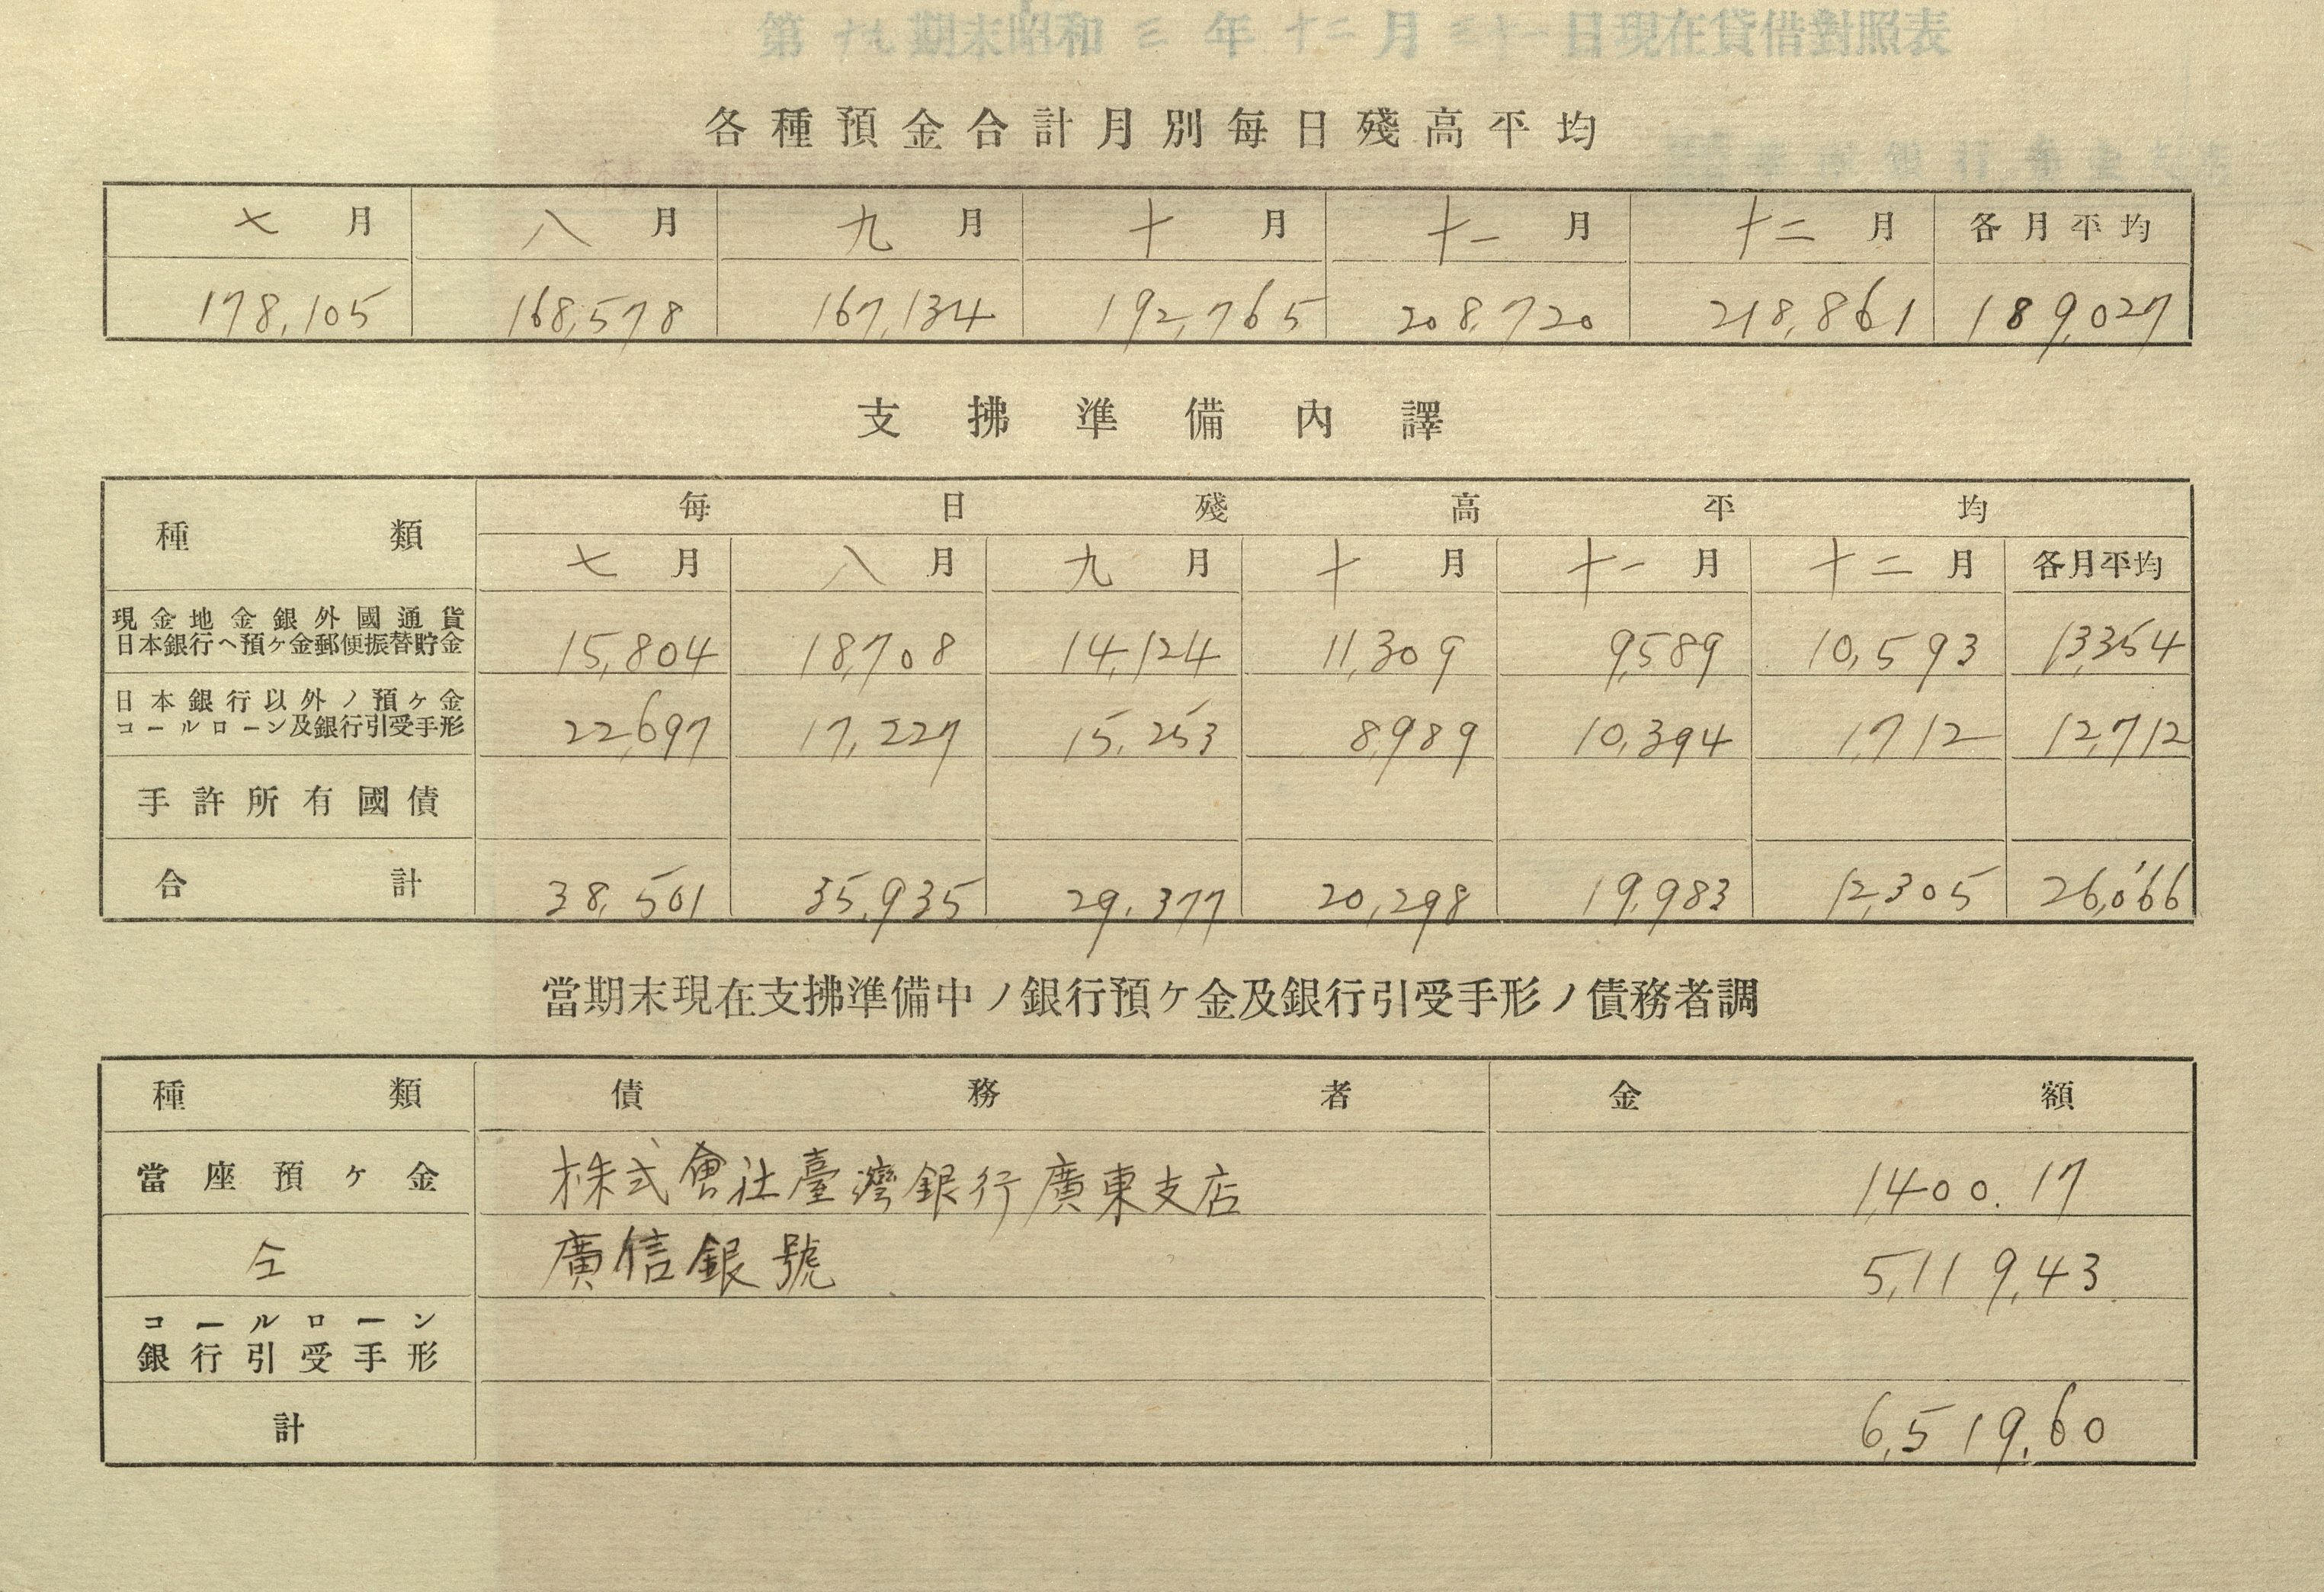 第十九期末昭和三年十二月三十一日現在貸借對照表
各種預金合計月別每日殘高平均
七月 八月 九月 十月 十一月 十二月 各月平均
178,105 168,578 167,134 192,765 208,720 218,861 189,027
支拂準備內譯
種類 每日殘高平均
七月 八月 九月 十月 十一月 十二月 各月平均
現金地金銀外國通貨
日本銀行ヘ預ケ金郵便振替貯金 15,804 18,708 14,124 11,309 9,589 10,593 13,354
日本銀行以外ノ預ケ金
コールローン及銀行引受手形 22,697 17,227 15,253 8,989 10,394 1,712 12,712
手許所有國債
合計 38,501 35,935 29,377 20,298 19,983 12,305 26,066
當期末現在支拂準備中ノ銀行預ケ金及銀行引受手形ノ債務者調
種類 債務者 金額
當座預ケ金 株式會社臺灣銀行廣東支店 1,400.17
仝 廣信銀號 5,119.43
コールローン
銀行引受手形
計 6,519.60